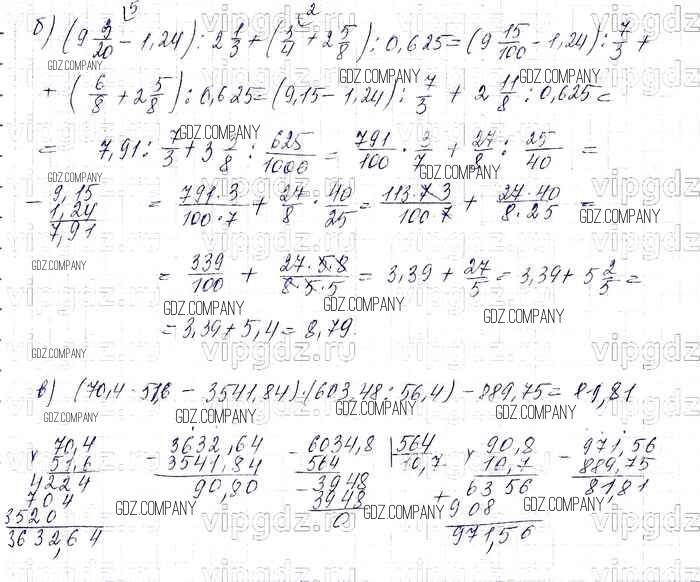 5 2
б) (9 3/20 - 1,24) : 2 1/3 + (3/4 + 2 5/8) : 0,625 = (9 15/100 - 1,24) : 7/3 +
+ (6/8 + 2 5/8) : 0,625 = (9,15 - 1,24) : 7/3 + 2 11/8 : 0,625 =
= 7,91 : 7/3 + 3 3/8 : 625/1000 = 791/100 · 3/7 + 27/8 : 25/40 =
- 9,15
1,24
7,91
= 791·3/100·7 + 27/8 · 40/25 = 113·7·3/100·7 + 27·40/8·25 =
= 339/100 + 27·5·8/8·5·5 = 3,39 + 27/5 = 3,39 + 5 2/5 =
= 3,39 + 5,4 = 8,79.
в) (70,4 · 51,6 - 3541,84) · (603,48 : 56,4) - 889,75 = 81,81
× 70,4
51,6
4224
704
3520
3632,64
- 3632,64
3541,84
90,80
- 6034,8 | 564
564 10,7
- 3948
3948
0
× 90,8
10,7
+ 6356
908
971,56
- 971,56
889,75
81,81
GDZ.COMPANY
vipgdz.ru